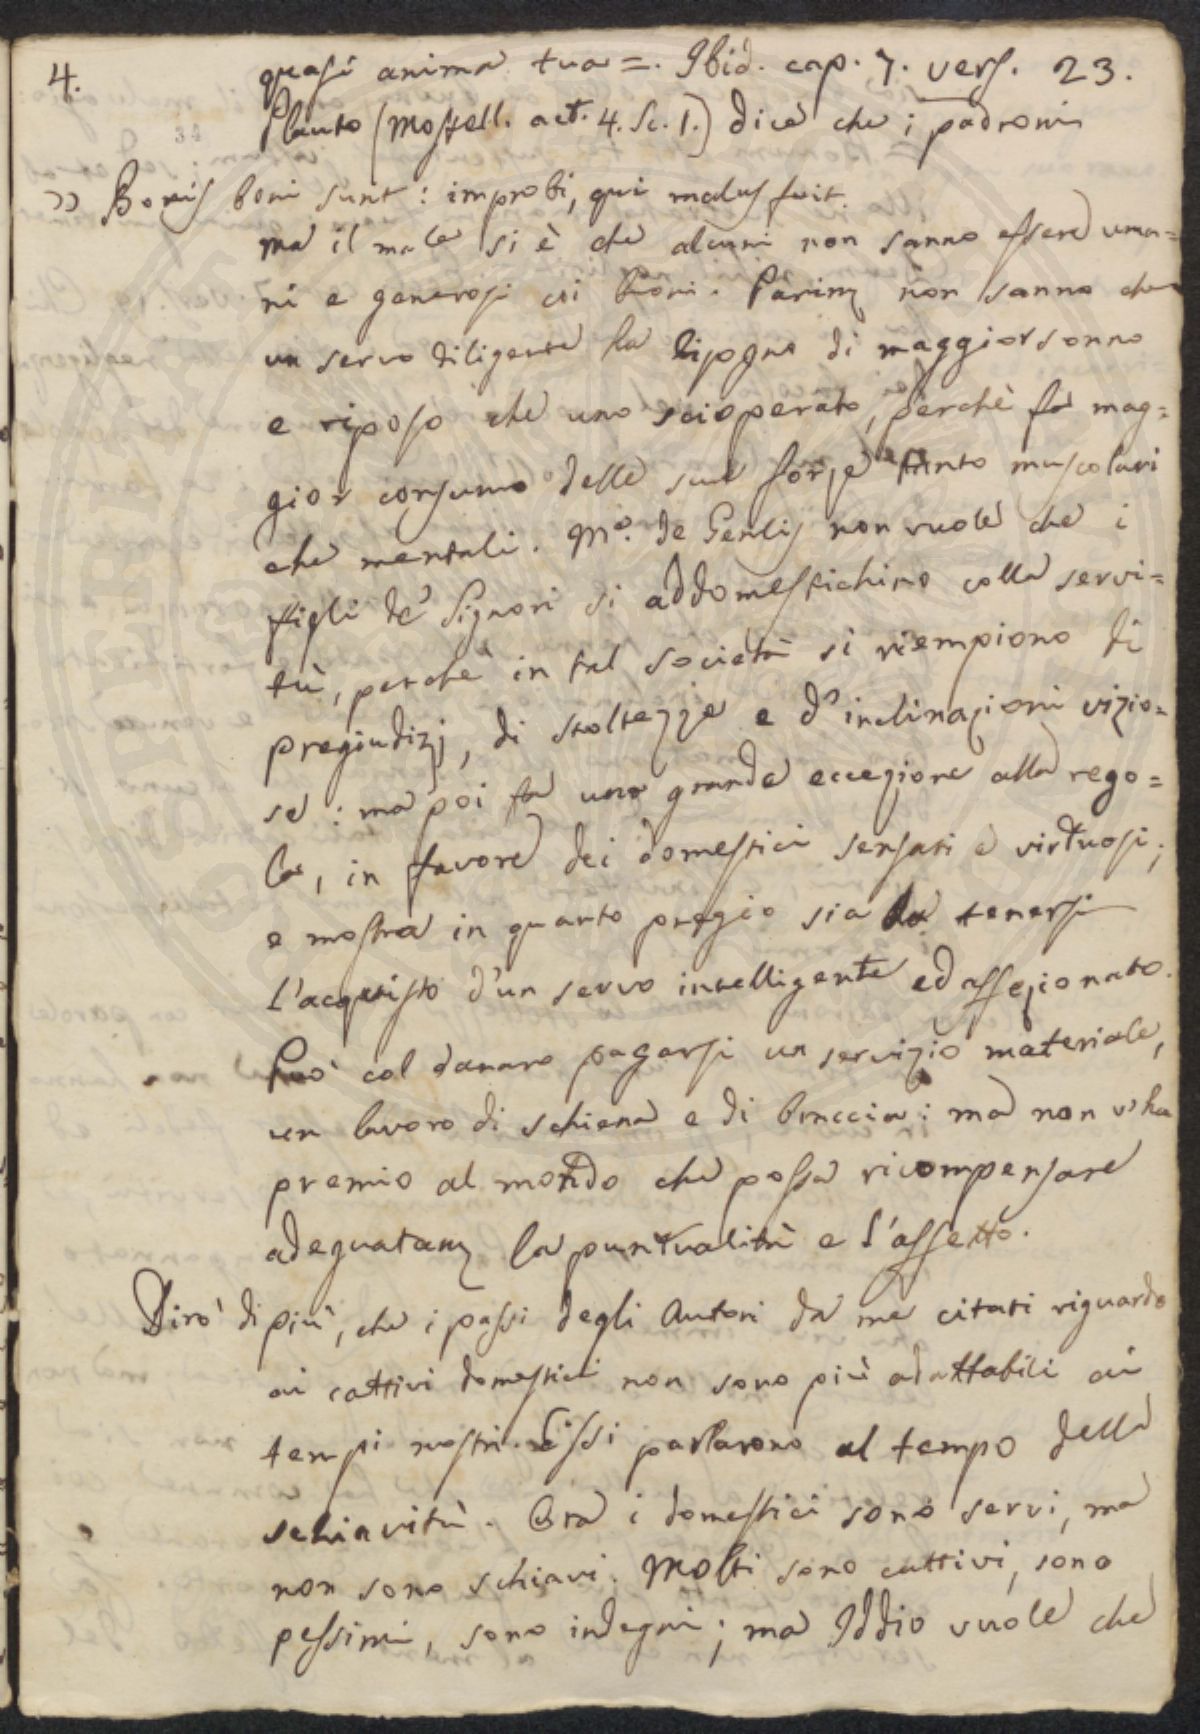 4.
quasi anima tua =. Ibid. cap. 7. vers. 23.
Plauto (Mostell. act. 4. Sc. 1.) dice che i padroni
» Bonis boni sunt: improbi, qui malus fuit.
ma il male si è che alcuni non sanno essere uma=
ni e generosi coi buoni. Parim non sanno che
un servo diligente ha bisogno di maggior sonno
e riposo che uno scioperato, perchè fa mag=
gior consumo delle sue forze tanto muscolari
che mentali. M.ª de Genlis non vuole che i
figli de' Signori si addomestichino colla servi=
tù, perchè in tal società si riempiono di
pregiudizj, di stoltezze e d'inclinazioni vizio=
se: ma poi fa una grande eccezione alla rego=
la, in favore dei domestici sensati e virtuosi;
e mostra in quanto pregio sia da tenersi
l'acquisto d'un servo intelligente ed affezionato.
Può col danaro pagarsi un servizio materiale,
un lavoro di schiena e di braccia: ma non v'ha
premio al mondo che possa ricompensare
adeguatam la puntualità e l'affetto.
Dirò di più, che i passi degli Autori da me citati riguardo
ai cattivi domestici non sono più adattabili ai
tempi nostri. Essi parlarono al tempo della
schiavitù. Ora i domestici sono servi, ma
non sono schiavi. Molti sono cattivi, sono
pessimi, sono indegni; ma Iddio vuole che